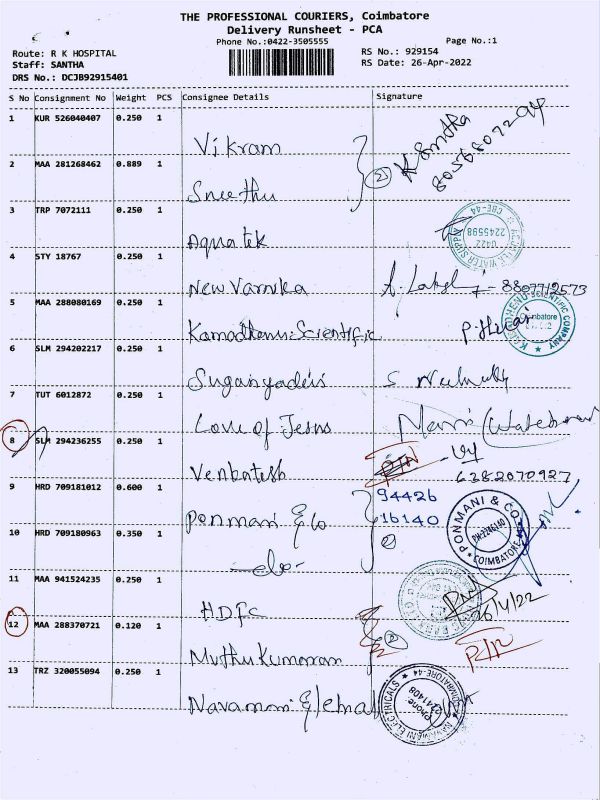 THE PROFESSIONAL COURIERS, Coimbatore
Delivery Runsheet - PCA
Phone No.:0422-3505555
Page No.:1
Route: R K HOSPITAL
Staff: SANTHA
DRS No.: DCJB92915401
RS No.: 929154
RS Date: 26-Apr-2022
S No Consignment No Weight PCS Consignee Details Signature
1 KUR 526040407 0.250 1 Vikram
2 MAA 281268462 0.889 1 Sneethu
(2) 8056807294
3 TRP 7072111 0.250 1 Aquatek
CBE-44 2245598 0422
4 STY 18767 0.250 1 New Varnika
5 MAA 288080169 0.250 1 Kamadhenu Scientific
KAMADHENU SCIENTIFIC COMPANY Coimbatore
6 SLM 294202217 0.250 1
7 TUT 6012872 0.250 1 Love of Jesus
8 SLM 294236255 0.250 1 Venkatesh
6382070927
9 HRD 709181012 0.600 1 Ponmani & Co
94426
16140
10 HRD 709180963 0.350 1 -do-
PONMANI & CO PH:2246140 COIMBATORE
11 MAA 941524235 0.250 1 HDFC
26/4/22
12 MAA 288370721 0.120 1 Muthu Kumaran
13 TRZ 320055094 0.250 1
NAVAMANI ELECTRICALS Phone 2241408 COIMBATORE-44